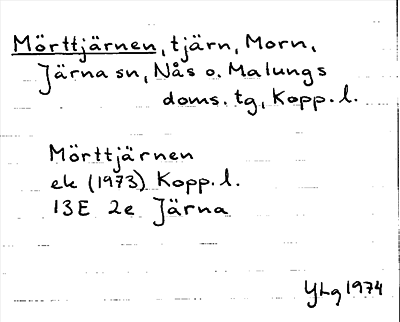 Mörttjärnen, tjärn, Morn,
Järna sn, Nås o. Malungs
doms. tg, Kopp. l.
Mörttjärnen
ek (1973) Kopp. l.
13E 2e Järna
YLg 1974